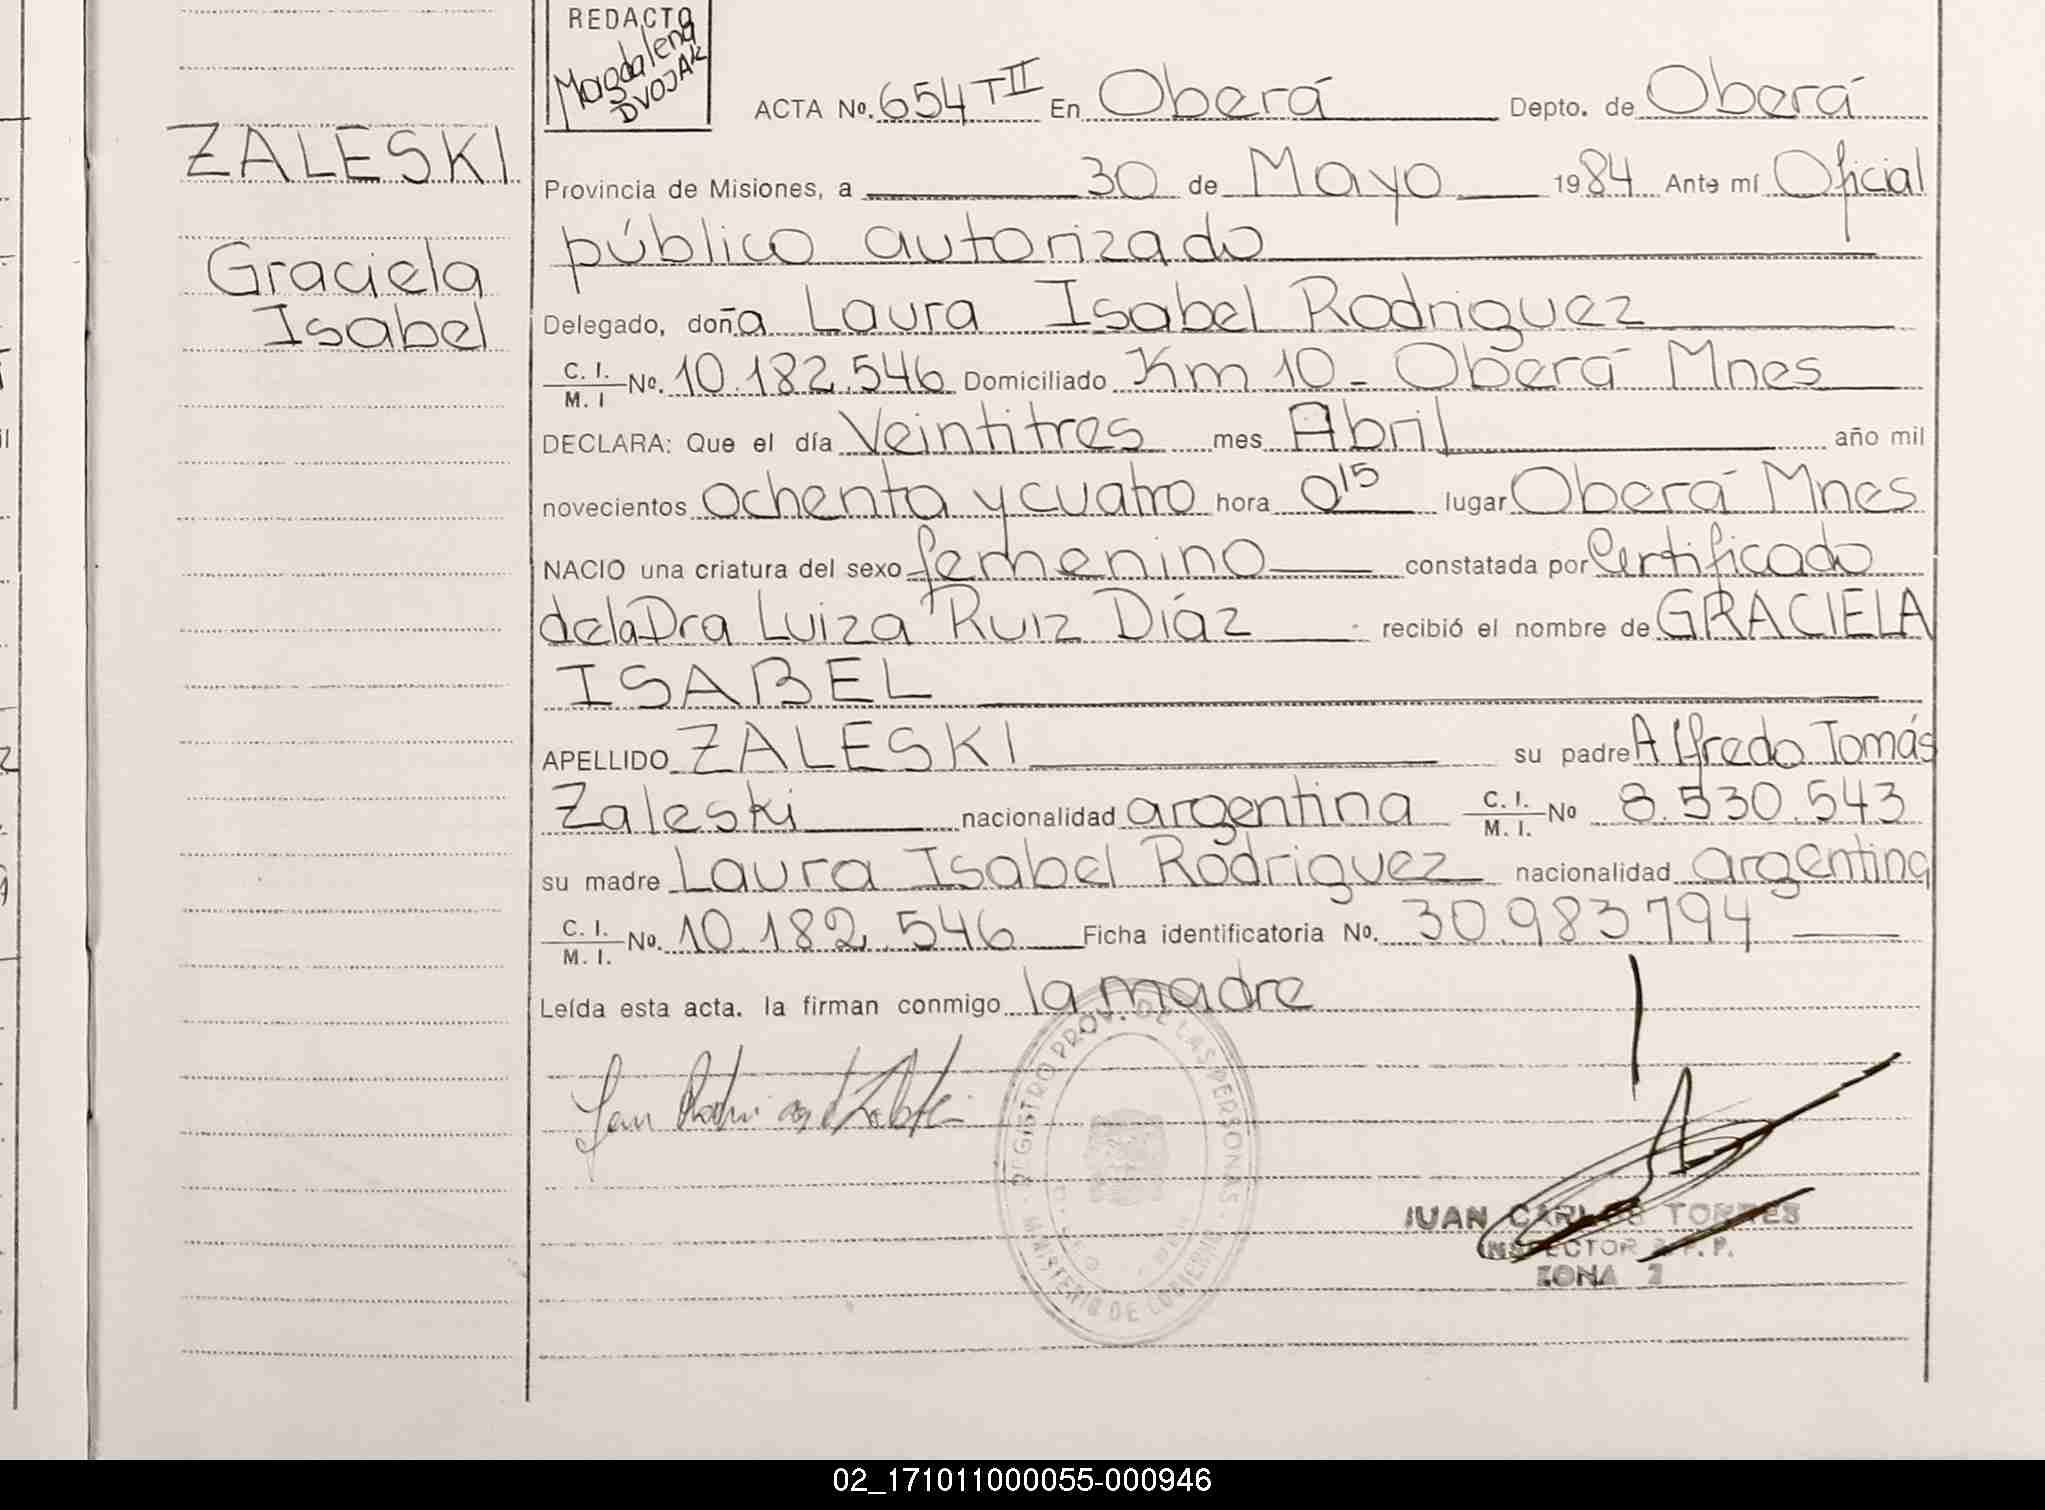 REDACTO
Magdalena
DVOJAK
ZALESKI
Graciela
Isabel
ACTA Nº. 654 T II En Oberá Depto. de Oberá
Provincia de Misiones, a 30 de Mayo 1984 Ante mí Oficial
público autorizado
Delegado, doña Laura Isabel Rodriguez
C. I. / M. I Nº. 10.182.546 Domiciliado Km 10 - Oberá Mnes
DECLARA: Que el día Veintitres mes Abril año mil
novecientos ochenta y cuatro hora 0 15 lugar Oberá Mnes
NACIO una criatura del sexo femenino constatada por Certificado
de la Dra Luiza Ruiz Díaz recibió el nombre de GRACIELA
ISABEL
APELLIDO ZALESKI su padre Alfredo Tomás
Zaleski nacionalidad argentina C. I. / M. I. Nº 8.530.543
su madre Laura Isabel Rodriguez nacionalidad argentina
C. I. / M. I. Nº. 10.182.546 Ficha identificatoria Nº. 30.983794
Leída esta acta. la firman conmigo la madre
REGISTRO PROV. DE LAS PERSONAS
MINISTERIO DE GOBIERNO
JUAN CARLOS TORRES
INSPECTOR R.P.P.
ZONA 2
02_171011000055-000946